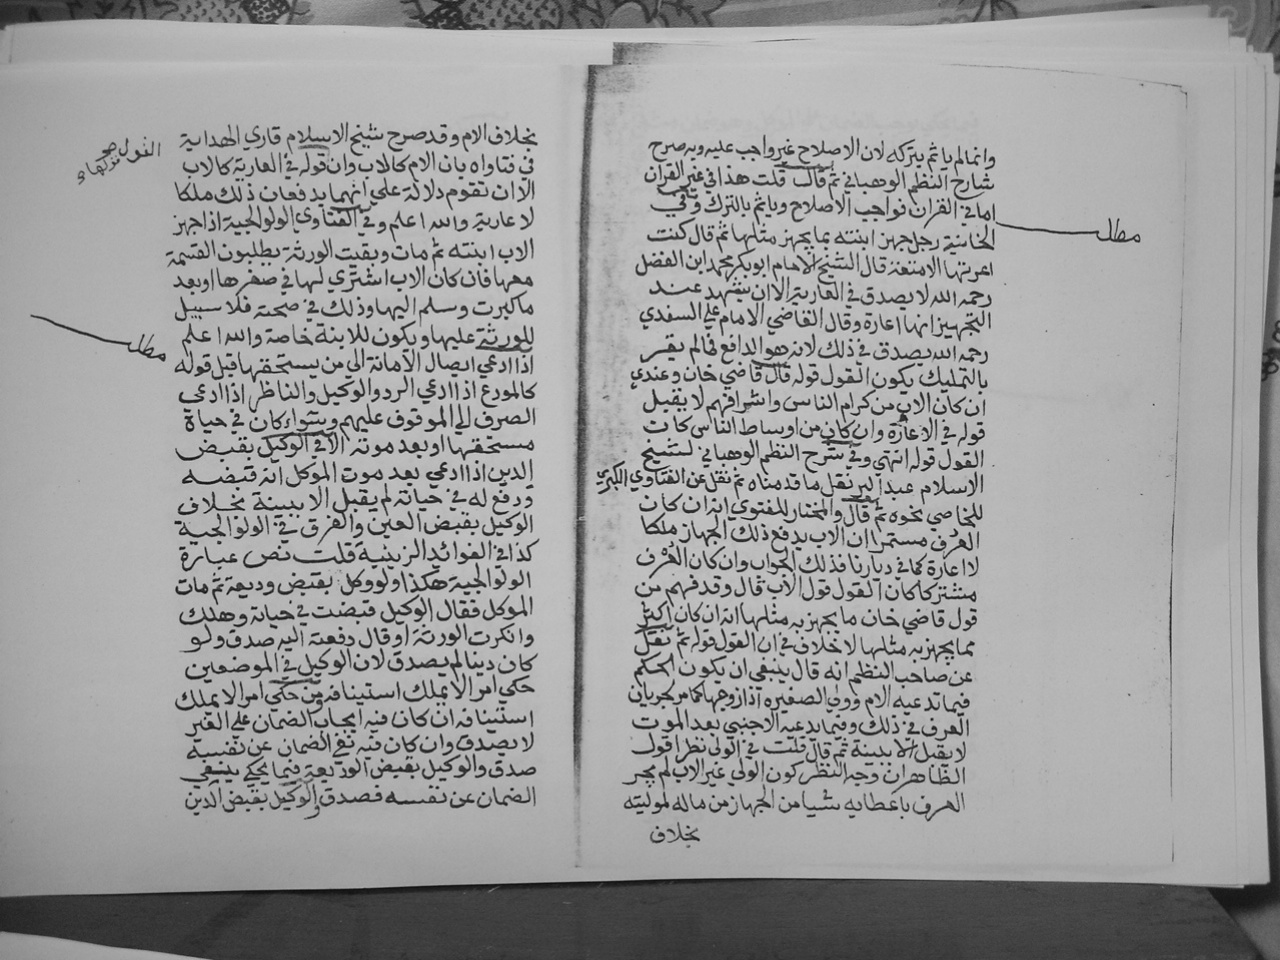 وانما لم ياثم بتركه لان الاصلاح غير واجب عليه وبه صرح
شارح النظم الوهباني ثم قالت قلت هذا في غير القران
اما في القران فواجب الاصلاح وياثم بالترك وفي
الخانية رجل جهز ابنته بما يجهز مثلها ثم قال كنت
مطلب
اعرتها الامتعة قال الشيخ الامام ابو بكر محمد ابن الفضل
رحمه الله لا يصدق في العارية الا ان يشهد عند
التجهيز انها اعارة وقال القاضي الامام علي السغدي
رحمه الله يصدق في ذلك لانه هو الدافع فما لم يقر
بالتمليك يكون القول قوله قال قاضي خان وعندي
ان كان الاب من كرام الناس واشرافهم لا يقبل
قوله في الاعارة وان كان من اوساط الناس كان
القول قوله انتهي وفي شرح النظم الوهباني لشيخ
الاسلام عبد البر نقل ما قدمناه ثم نقل عن الفتاوي الكبري
للخاصي نحوه ثم قال والمختار للفتوي انه ان كان
العرف مستمرا ان الاب يدفع ذلك الجهاز ملكا
لا اعارة كما في ديارنا فذلك الجواب وان كان العرف
مشتركا كان القول قول الاب قال وقد فهم من
قول قاضي خان ما يجهز به مثلها انه ان كان اكثر
مما يجهز به مثلها لا خلاف في ان القول قوله ثم نقل
عن صاحب النظم انه قال ينبغي ان يكون الحكم
فيما تدعيه الام وولي الصغيره اذا زوجها كما مر لجريان
العرف في ذلك وفيما يدعيه الاجنبي بعد الموت
لا يقبل الا ببينة ثم قال قلت في الولي نظر اقول
الظاهر ان وجه النظر كون الولي غير الاب لم يجر
العرف باعطايه شيا من الجهاز من ماله لموليته
بخلاف
بخلاف الام وقد صرح شيخ الاسلام قاري الهداية
في فتاواه بان الام كالاب وان قوله في العارية كالاب
الا ان تقوم دلالة علي انهما يدفعان ذلك ملكا
لا عارية والله اعلم وفي الفتاوي الولوالجية اذا جهز
الاب ابنته ثم مات وبقيت الورثة يطلبون القسمة
معها فان كان الاب اشتري لها في صغرها او بعد
ما كبرت وسلم اليها وذلك في صحته فلا سبيل
للورثة عليها ويكون للابنة خاصة والله اعلم
مطلب
اذا ادعي ايصال الامانة الي من يستحقها قبل قوله
كالمودع اذا ادعي الرد والوكيل والناظر اذا ادعي
الصرف الي الموقوف عليهم وسواء كان في حياة
مستحقها او بعد موته الا في الوكيل بقبض
الدين اذا ادعي بعد موت الموكل انه قبضه
ودفع له في حياته لم يقبل الا ببينة بخلاف
الوكيل بقبض العين والفرق في الولوالجية
كذا في الفوائد الزينية قلت نص عبارة
الولوالجية هكذا ولو وكل بقبض وديعة ثم مات
الموكل فقال الوكيل قبضت في حياته وهلك
وانكرت الورثة او قال دفعته اليه صدق ولو
كان دينا لم يصدق لان الوكيل في الموضعين
حكي امرا لا يملك استينافه ومن حكي امرا لا يملك
استينافه ان كان فيه ايجاب الضمان علي الغير
لا يصدق وان كان فيه نفي الضمان عن نفسه
صدق والوكيل بقبض الوديعة فيما يحكي ينفي
الضمان عن نفسه فصدق والوكيل بقبض الدين